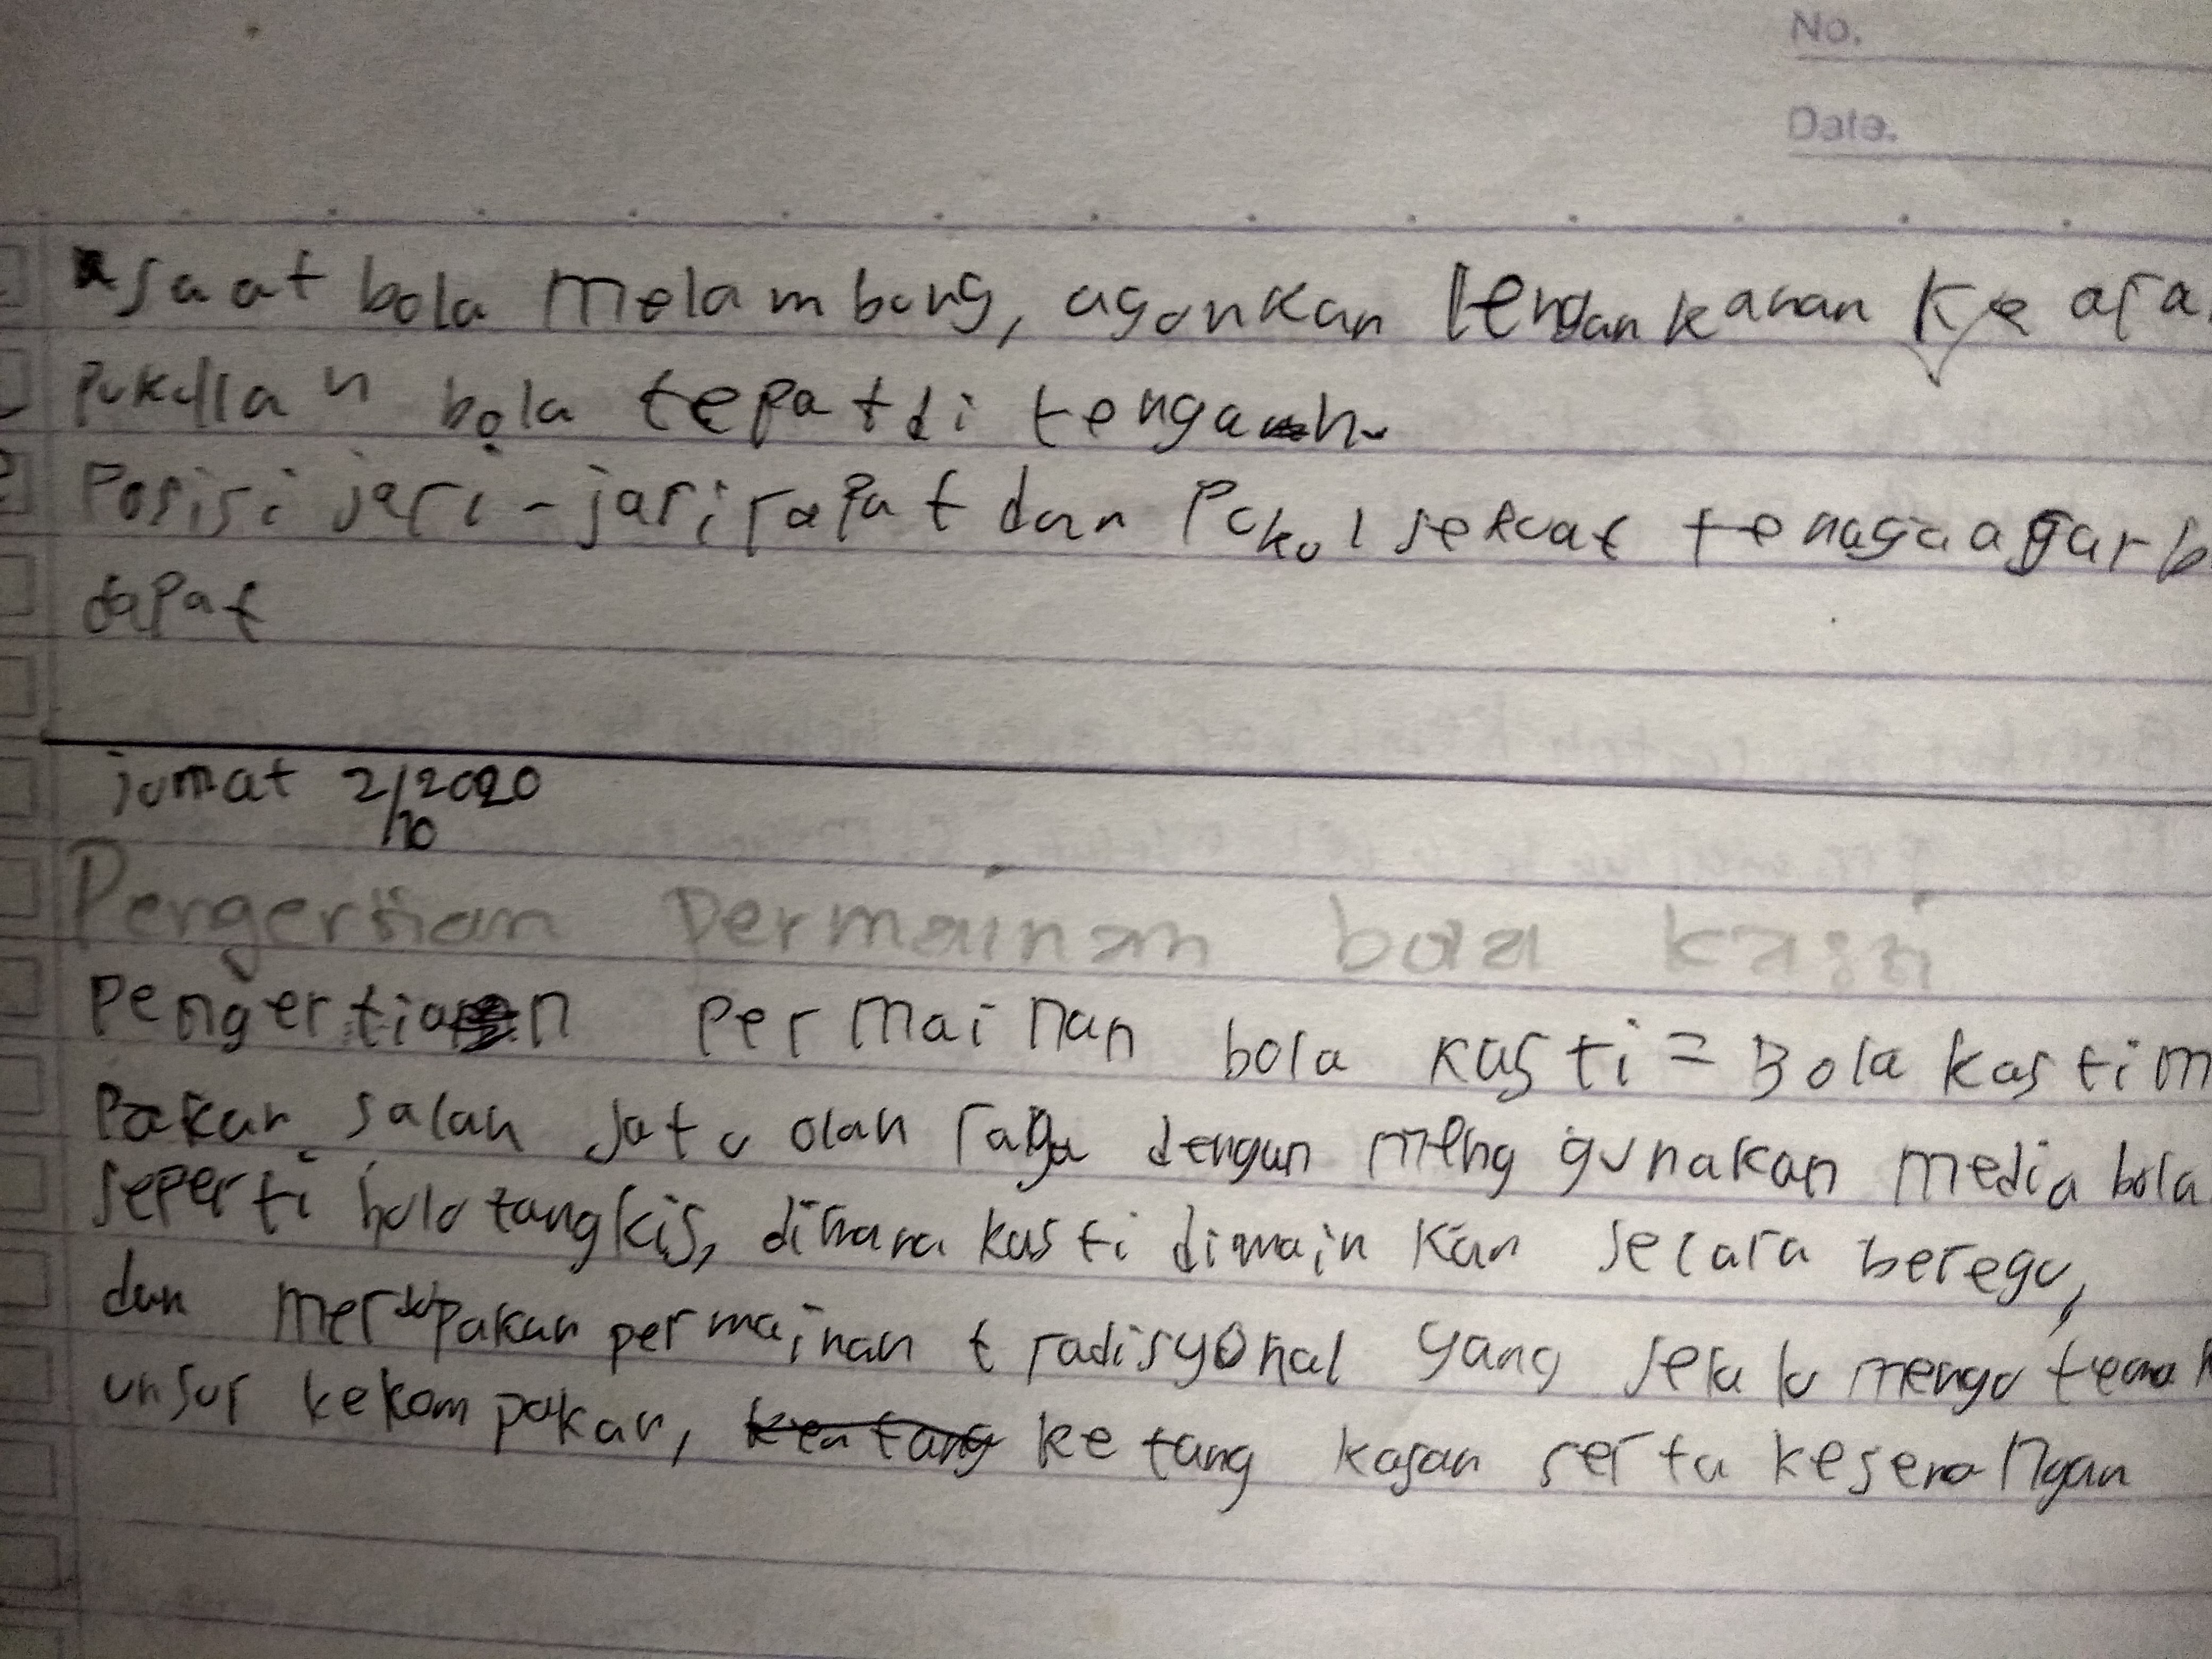 No.
Date.
saat bola melambung, ayunkan lengan kanan ke ara
Pukullah bola tepat di tengah
Posisi jari-jari rapat dan Pukul sekuat tenaga agar b
dapat
jumat 2/10 2020
Pengertian permainan bola kasti
Pengertian Permainan bola kasti = Bola kasti m
Pakan salah satu olah raga dengan meng gunakan media bola
seperti bulu tangkis, dimana kasti dimain kan secara beregu,
dan merupakan permainan tradisyonal yang selalu mengu
unsur kekompakan, ke tang kasan serta kesenangan